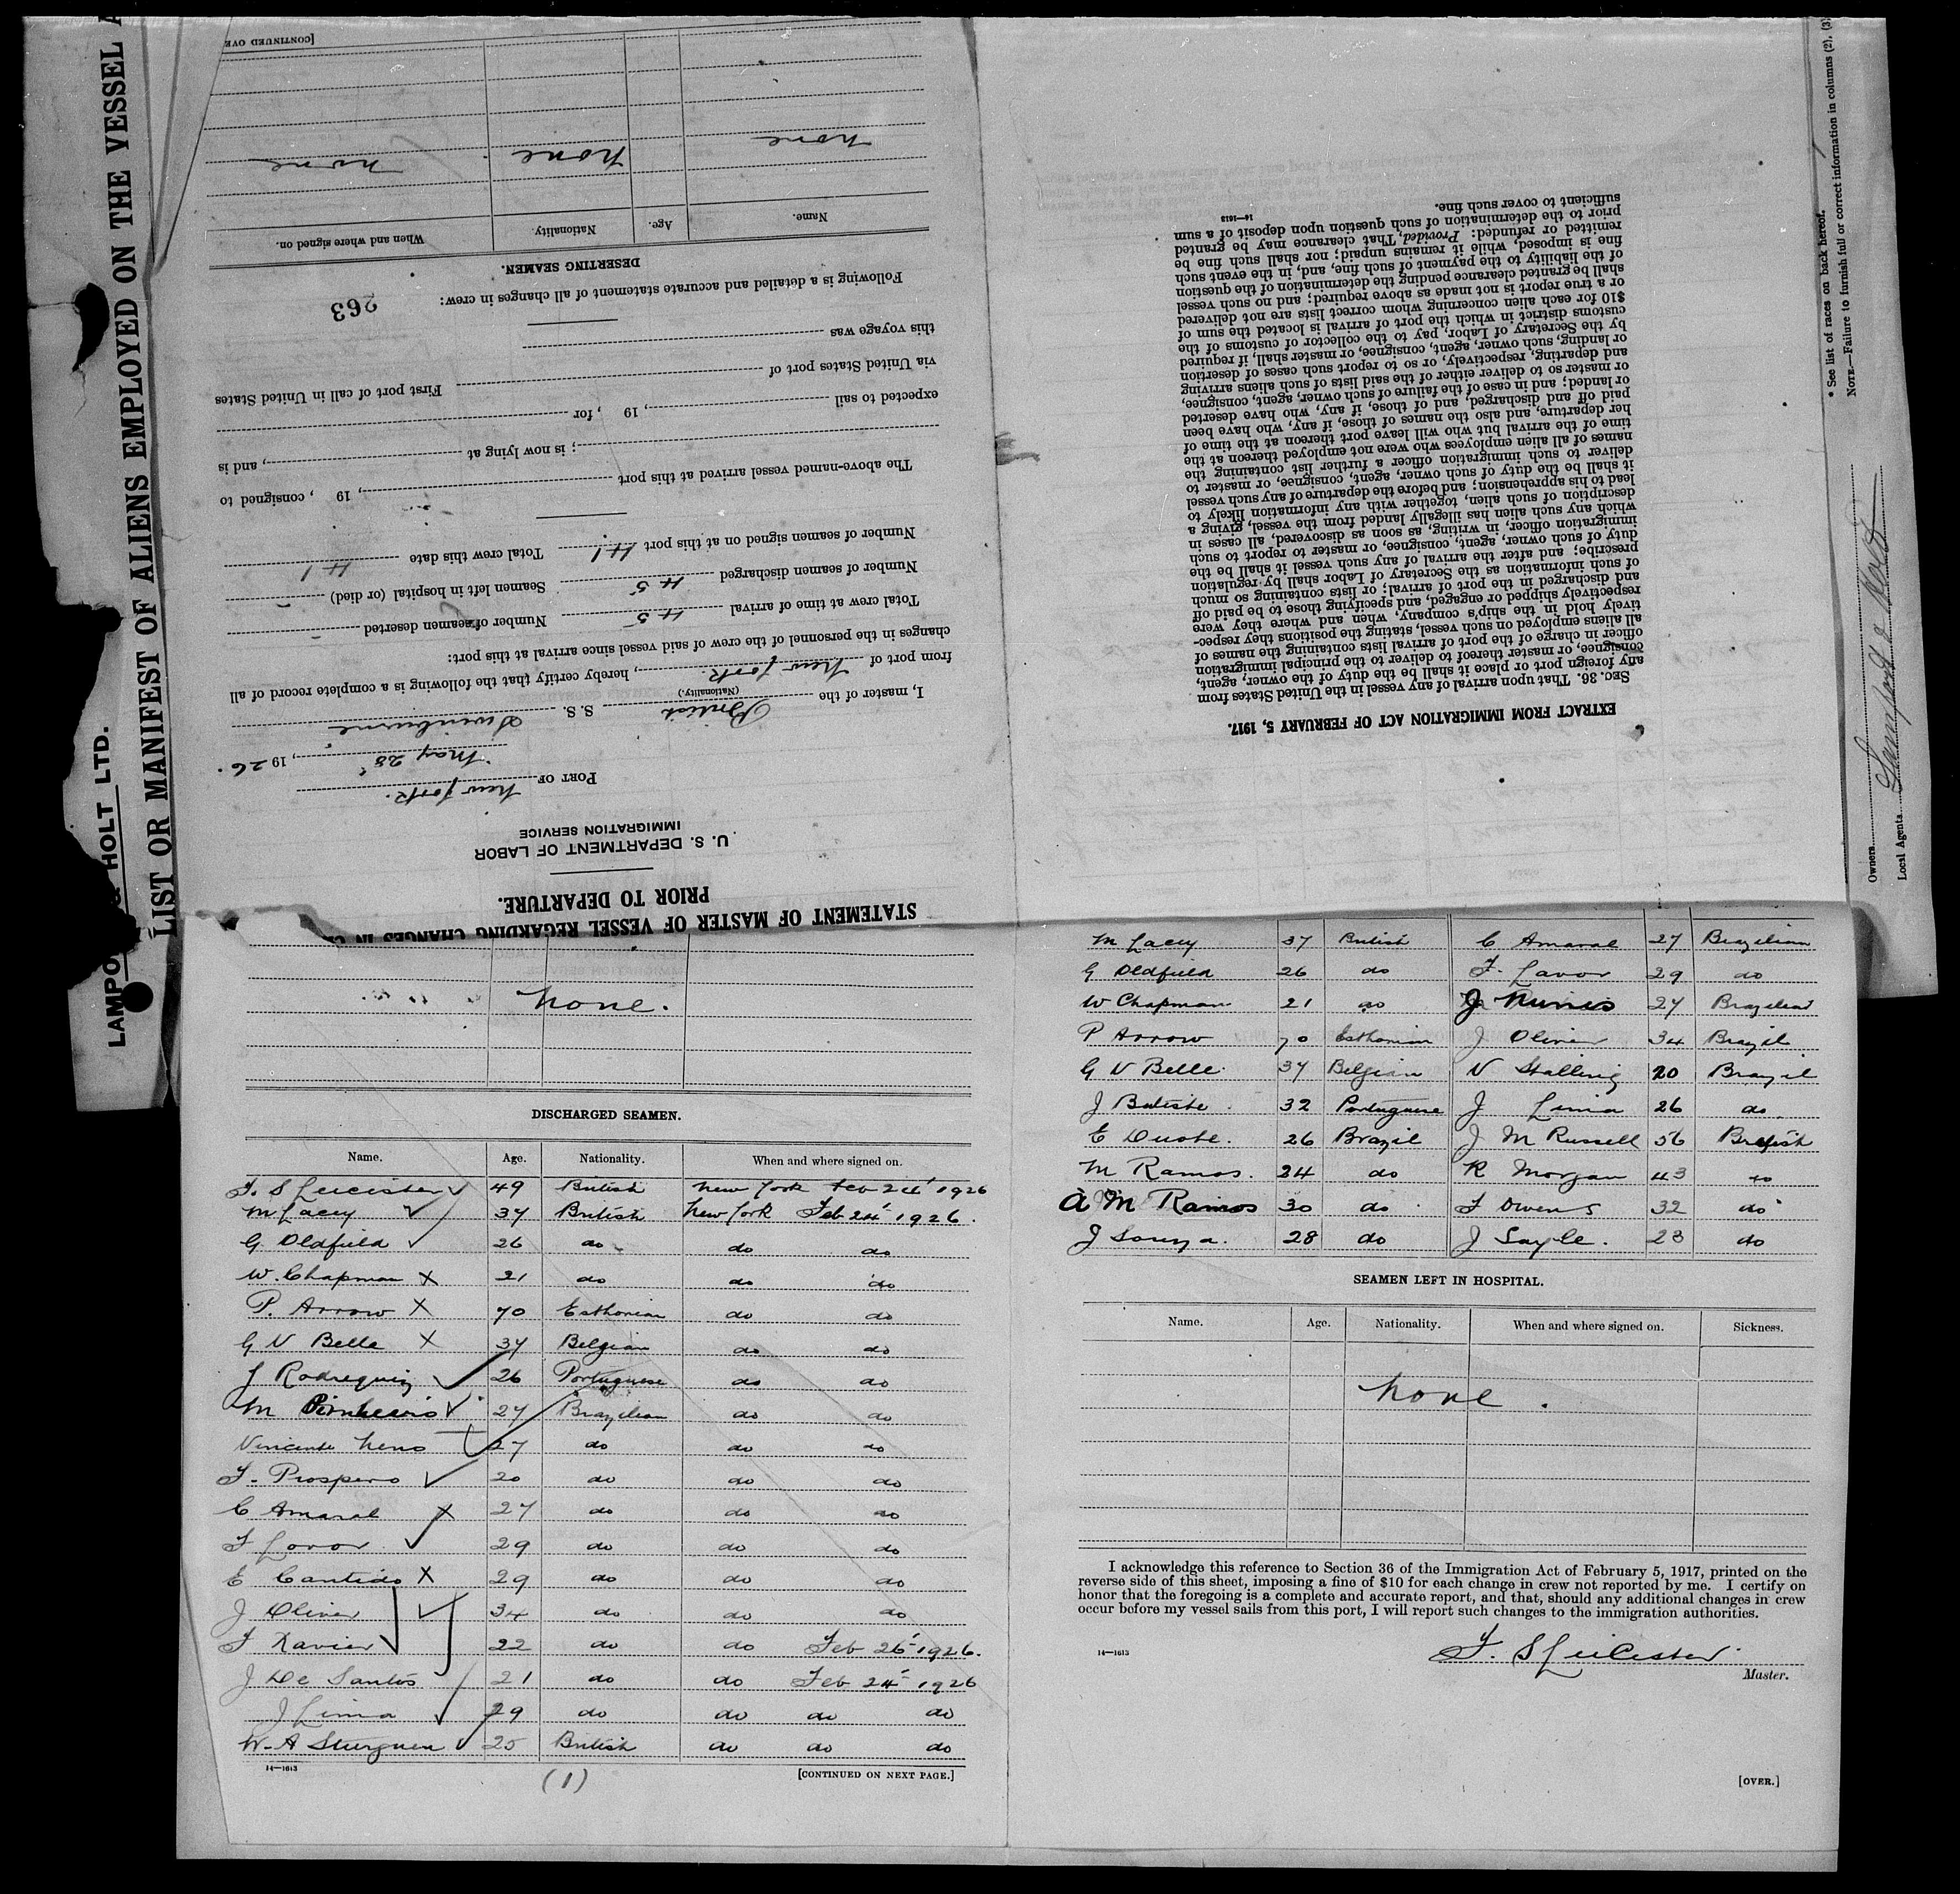 LAMPO & HOLT LTD.
LIST OR MANIFEST OF ALIENS EMPLOYED ON THE VESSEL A
STATEMENT OF MASTER OF VESSEL REGARDING CHANGES IN
PRIOR TO DEPARTURE.
U. S. DEPARTMENT OF LABOR
IMMIGRATION SERVICE
PORT OF New York.
May 28, 1926.
I, master of the British S. S. Swinburne
(Nationality.)
from port of New York, hereby certify that the following is a complete record of all
changes in the personnel of the crew of said vessel since arrival at this port:
Total crew at time of arrival 45 Number of seamen deserted -
Number of seamen discharged 45 Seamen left in hospital (or died) -
Number of seamen signed on at this port 41 Total crew this date 41
The above-named vessel arrived at this port , 19 , consigned to
; is now lying at , and is
expected to sail , 19 , for
via United States port of First port of call in United States
this voyage was
Following is a detailed and accurate statement of all changes in crew:
263
DESERTING SEAMEN.
Name. Age. Nationality. When and where signed on.
none none none
[CONTINUED OVE
EXTRACT FROM IMMIGRATION ACT OF FEBRUARY 5, 1917.
SEC. 36. That upon arrival of any vessel in the United States from
any foreign port or place it shall be the duty of the owner, agent,
consignee, or master thereof to deliver to the principal immigration
officer in charge of the port of arrival lists containing the names of
all aliens employed on such vessel, stating the positions they respec-
tively hold in the ship's company, when and where they were
respectively shipped or engaged, and specifying those to be paid off
and discharged in the port of arrival; or lists containing so much
of such information as the Secretary of Labor shall by regulation
prescribe; and after the arrival of any such vessel it shall be the
duty of such owner, agent, consignee, or master to report to such
immigration officer, in writing, as soon as discovered, all cases in
which any such alien has illegally landed from the vessel, giving a
description of such alien, together with any information likely to
lead to his apprehension; and before the departure of any such vessel
it shall be the duty of such owner, agent, consignee, or master to
deliver to such immigration officer a further list containing the
names of all alien employees who were not employed thereon at the
time of the arrival but who will leave port thereon at the time of
her departure, and also the names of those, if any, who have been
paid off and discharged, and of those, if any, who have deserted
or landed; and in case of the failure of such owner, agent, consignee,
or master so to deliver either of the said lists of such aliens arriving
and departing, respectively, or so to report such cases of desertion
or landing, such owner, agent, consignee, or master shall, if required
by the Secretary of Labor, pay to the collector of customs of the
customs district in which the port of arrival is located the sum of
$10 for each alien concerning whom correct lists are not delivered
or a true report is not made as above required; and no such vessel
shall be granted clearance pending the determination of the question
of the liability to the payment of such fine, and, in the event such
fine is imposed, while it remains unpaid; nor shall such fine be
remitted or refunded: Provided, That clearance may be granted
prior to the determination of such question upon deposit of a sum
sufficient to cover such fine.
14—1613
* See list of races on back hereof.
NOTE.—Failure to furnish full or correct information in columns (2), (3)
Owners
Local Agents
none.
DISCHARGED SEAMEN.
Name. Age. Nationality. When and where signed on.
F. S Leicester 49 British New York Feb 24 1926
M Lacey 37 British New York Feb 24 1926.
G. Oldfield 26 do do do
W. Chapman X 21 do do do
P. Arrow X 70 Esthonian do do
G V Belle X 37 Belgian do do
J Rodreguiz 26 Portuguese do do
M Pinheiro 27 Brazilian do do
Vincente Neno 27 do do do
F. Prospero 20 do do do
C Amaral X 27 do do do
F Lavor 29 do do do
E Cantido X 29 do do do
J Oliver 34 do do do
F Xavier 22 do do Feb 26 1926.
J De Santos 21 do do Feb 24 1926
J Lima 29 do do do do
W. A Sturguen 25 British do do do
14—1613
(1)
[CONTINUED ON NEXT PAGE.]
M Lacey 37 British C Amaral 27 Brazilian
G Oldfield 26 do F. Lavor 29 do
W Chapman 21 do J Nunes 27 Brazilian
P Arrow 70 Esthonian J Oliver 34 Brazil
G V Belle. 37 Belgian V Stalling 20 Brazil
J Batiste. 32 Portuguese J Lima 26 do.
E Duote. 26 Brazil J M Russell 56 British
M Ramos. 24 do R Morgan 43 do
A M Ramos 30 do F Owens 32 do
J Souza. 28 do J Sayle. 23 do
SEAMEN LEFT IN HOSPITAL.
Name. Age. Nationality. When and where signed on. Sickness.
none.
I acknowledge this reference to Section 36 of the Immigration Act of February 5, 1917, printed on the
reverse side of this sheet, imposing a fine of $10 for each change in crew not reported by me. I certify on
honor that the foregoing is a complete and accurate report, and that, should any additional changes in crew
occur before my vessel sails from this port, I will report such changes to the immigration authorities.
14—1613
F. S Leicester
Master.
[OVER.]